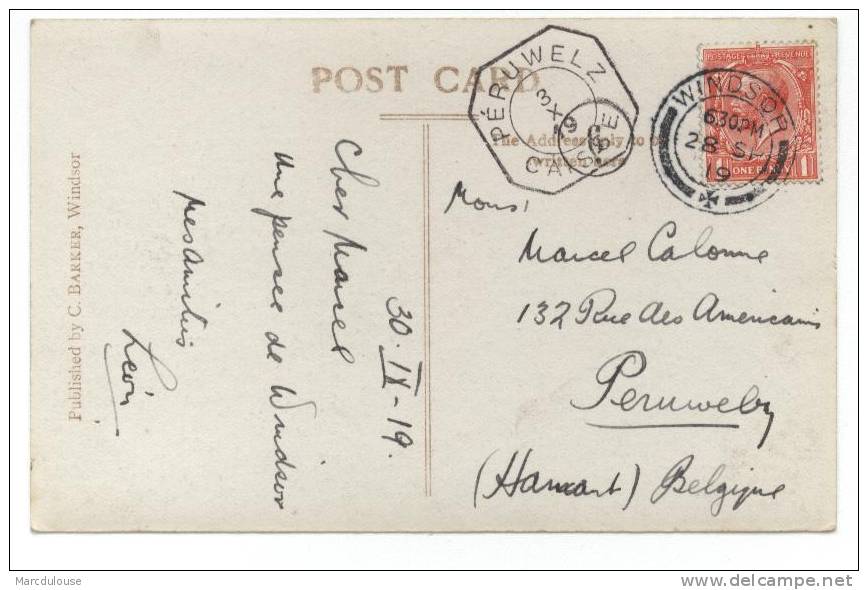 POST CARD
The Address only to be
written here
Published by C. BARKER, Windsor
30. IX - 19.
Cher Marcel
Une pensee de Windsor
Mes Amitiés
Léon
PÉRUWELZ
3 X
19
CAISSE
WINDSOR
6 30 PM
28 SP
19
POSTAGE REVENUE
ONE PENNY
Mons
Marcel Calonne
132 Rue des Americains
Peruwelz
(Hainaut) Belgique
Marcdulouse
www.delcampe.net